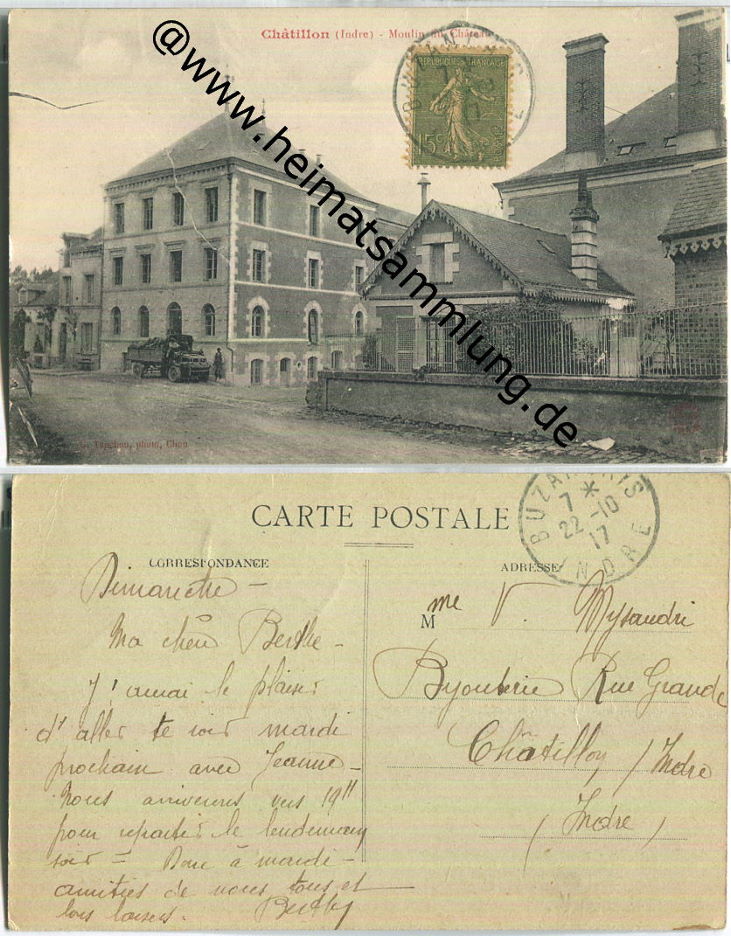 Châtillon (Indre) - Moulin du Château
REPUBLIQUE FRANÇAISE
15c
@www.heimatsammlung.de
photo, Chon
CARTE POSTALE
CORRESPONDANCE
ADRESSE
BUZANÇAIS
7 *
22 -10
17
INDRE
Dimanche -
Ma chère Berthe -
J'aurai le plaisir
d'aller te voir mardi
prochain avec Jeanne -
Nous arriverons vers 19h
pour repartir le lendemain
soir - Donc à mardi -
amitiés de nous tous et
bons baisers. Berthe
Mme V. Mysandri
Bijouterie Rue Grande
Châtillon / Indre
(Indre)